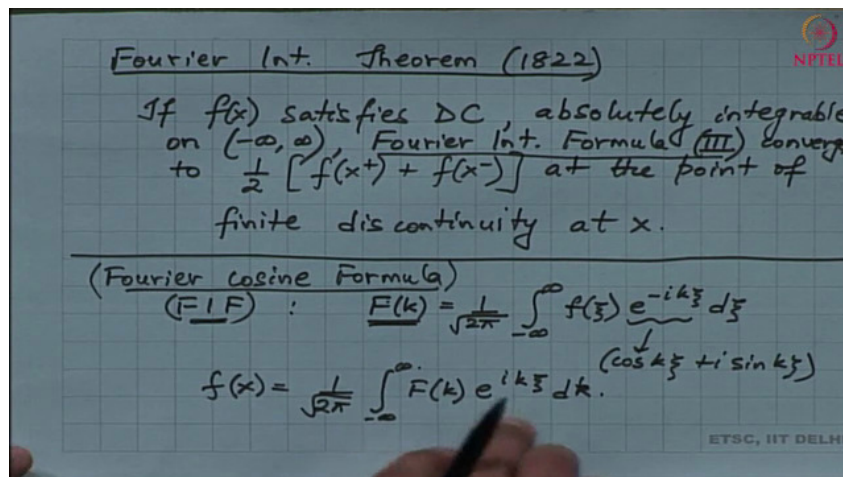 Fourier Int. Theorem (1822)
NPTEL
If f(x) satisfies DC, absolutely integrable
on (-∞, ∞), Fourier Int. Formula (III) converg
to 1/2 [f(x⁺) + f(x⁻)] at the point of
finite discontinuity at x.
(Fourier cosine Formula)
(FIF) : F(k) = 1/√2π ∫_{-∞}^{∞} f(ξ) e^{-ikξ} dξ
(cos kξ + i sin kξ)
f(x) = 1/√2π ∫_{-∞}^{∞} F(k) e^{ikξ} dk.
ETSC, IIT DELH